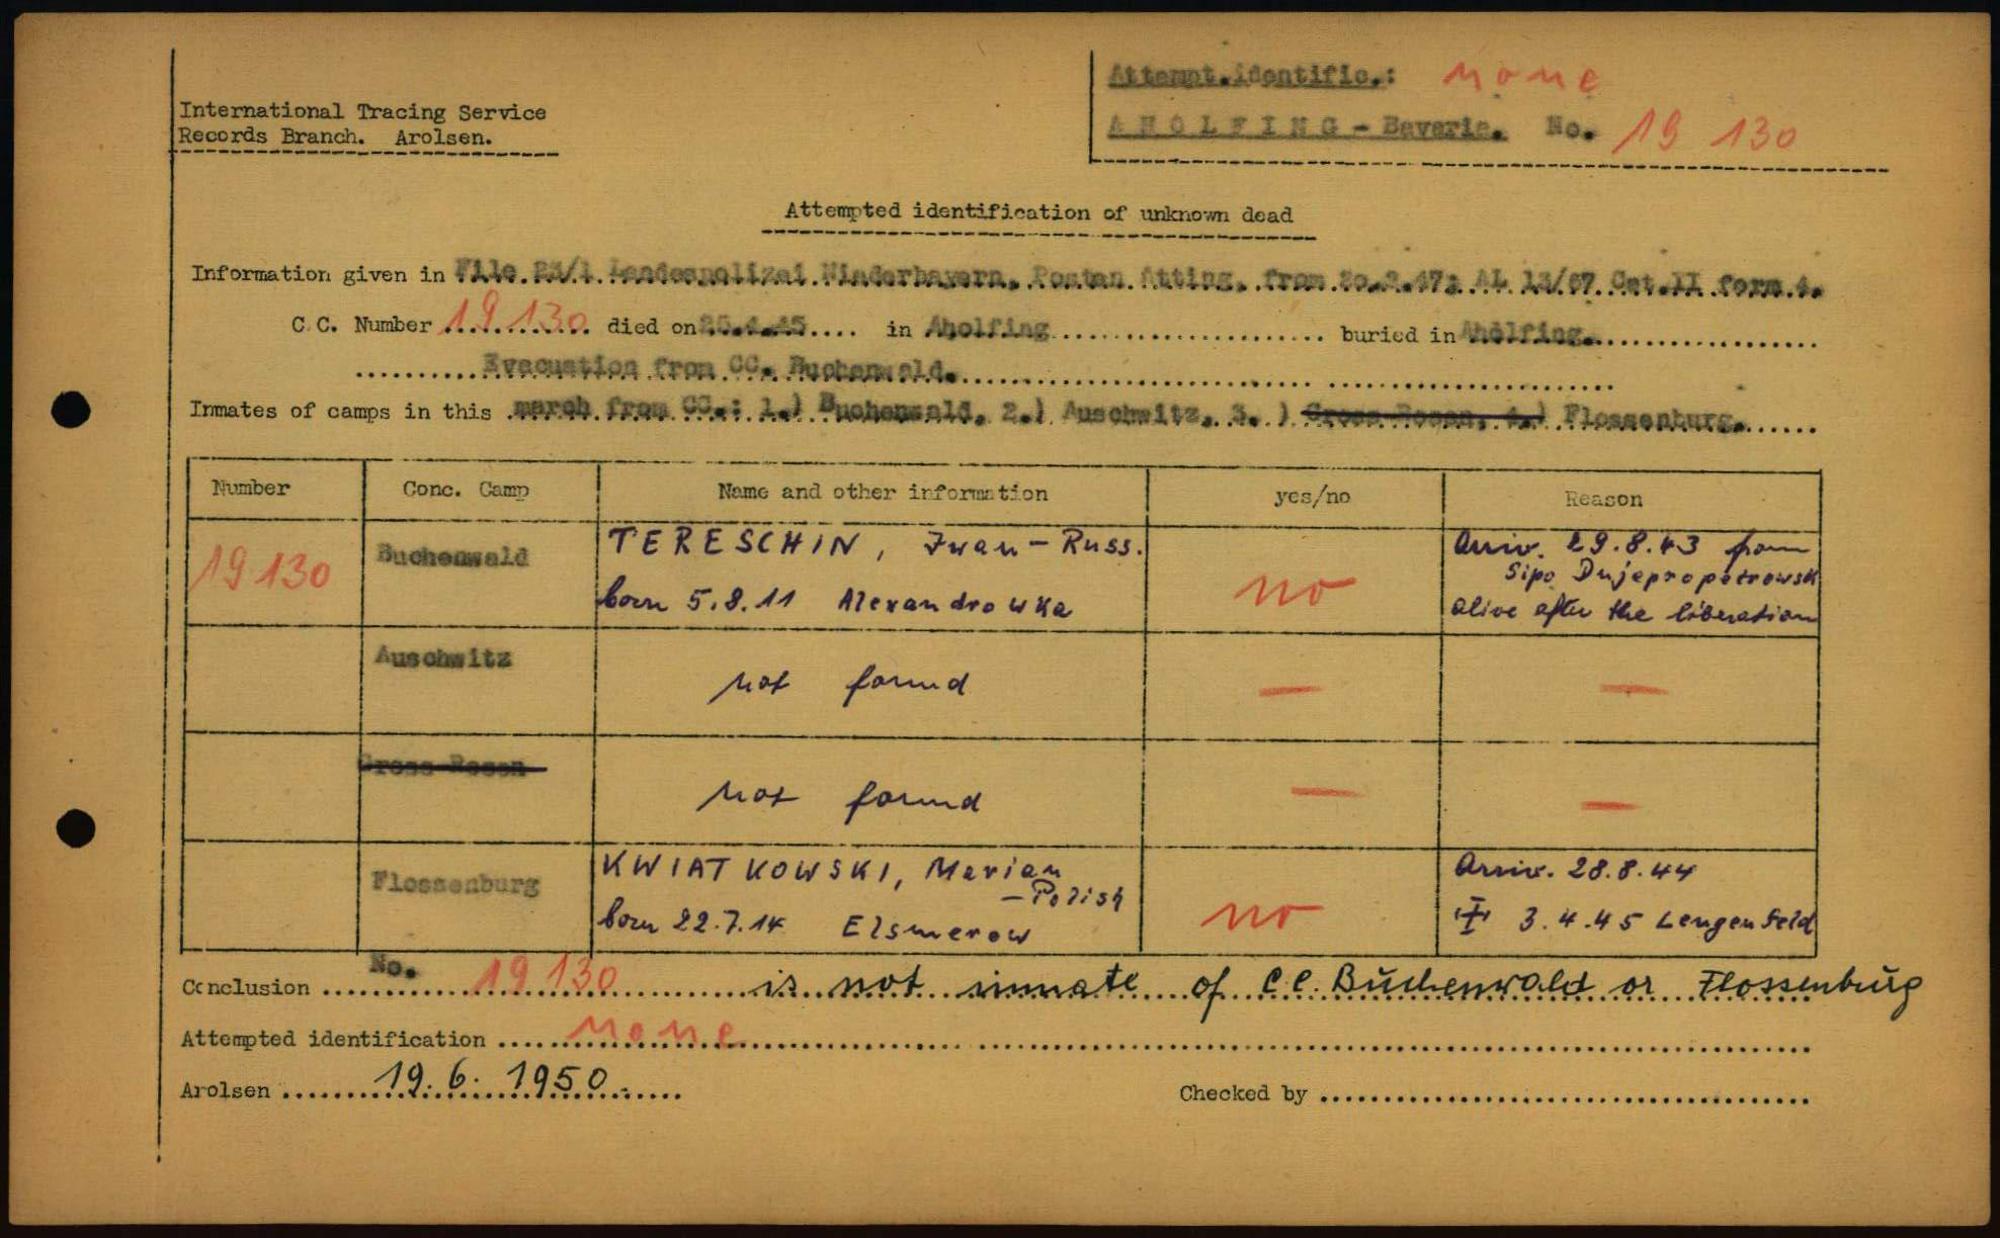 International Tracing Service
Records Branch. Arolsen.
Attempt.identific.: none
AHOLFING - Bavaria. No. 19 130
Attempted identification of unknown dead
Information given in File 23/1 Landespolizei Niederbayern, Posten Atting, from 20.2.47; AL 13/67 Cat.II form 4.
C.C. Number 19 130 died on 26.4.45 in Aholfing buried in Aholfing.
Evacuation from CC. Buchenwald.
Inmates of camps in this march from CC.: 1.) Buchenwald, 2.) Auschwitz, 3.) Gross Rosen, 4.) Flossenburg.
Number Conc. Camp Name and other information yes/no Reason
19130 Buchenwald TERESCHIN, Iwan - Russ. no Arriv. 29.8.43 from
Sipo Dnjepropetrowsk
born 5.8.11 Alexandrowka alive after the liberation
Auschwitz not found — —
Gross Rosen not found — —
Flossenburg KWIATKOWSKI, Marian no Arriv. 28.8.44
- Polish
born 22.7.14 Elsmerow 3.4.45 Lengenfeld
Conclusion No. 19 130 is not inmate of C.C. Buchenwald or Flossenbürg
Attempted identification none
Arolsen 19. 6. 1950.
Checked by